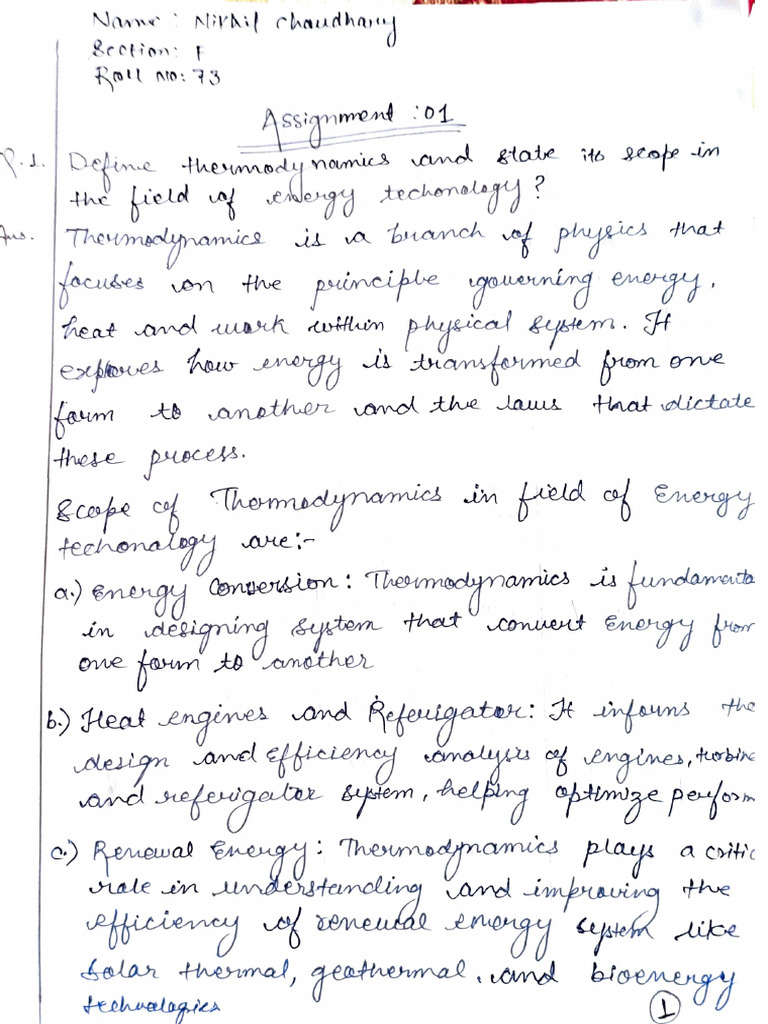 Name: Nikhil Chaudhary
Section: F
Roll no: 73
Assignment :01
Q.1. Define thermodynamics and state its scope in
the field of energy techonology?
Ans. Thermodynamics is a branch of physics that
focuses on the principle governing energy,
heat and work within physical system. It
explores how energy is transformed from one
form to another and the laws that dictate
these process.
Scope of Thermodynamics in field of Energy
techonalogy are:-
a.) Energy Conversion: Thermodynamics is fundamenta
in designing system that convert Energy from
one form to another
b.) Heat engines and Referigator: It informs the
design and efficiency analysis of engines, turbine
and referigator system, helping optimize perform
c.) Renewal Energy: Thermodynamics plays a critic
role in understanding and improving the
efficiency of renewal energy system like
solar thermal, geothermal, and bioenergy
technologies
1